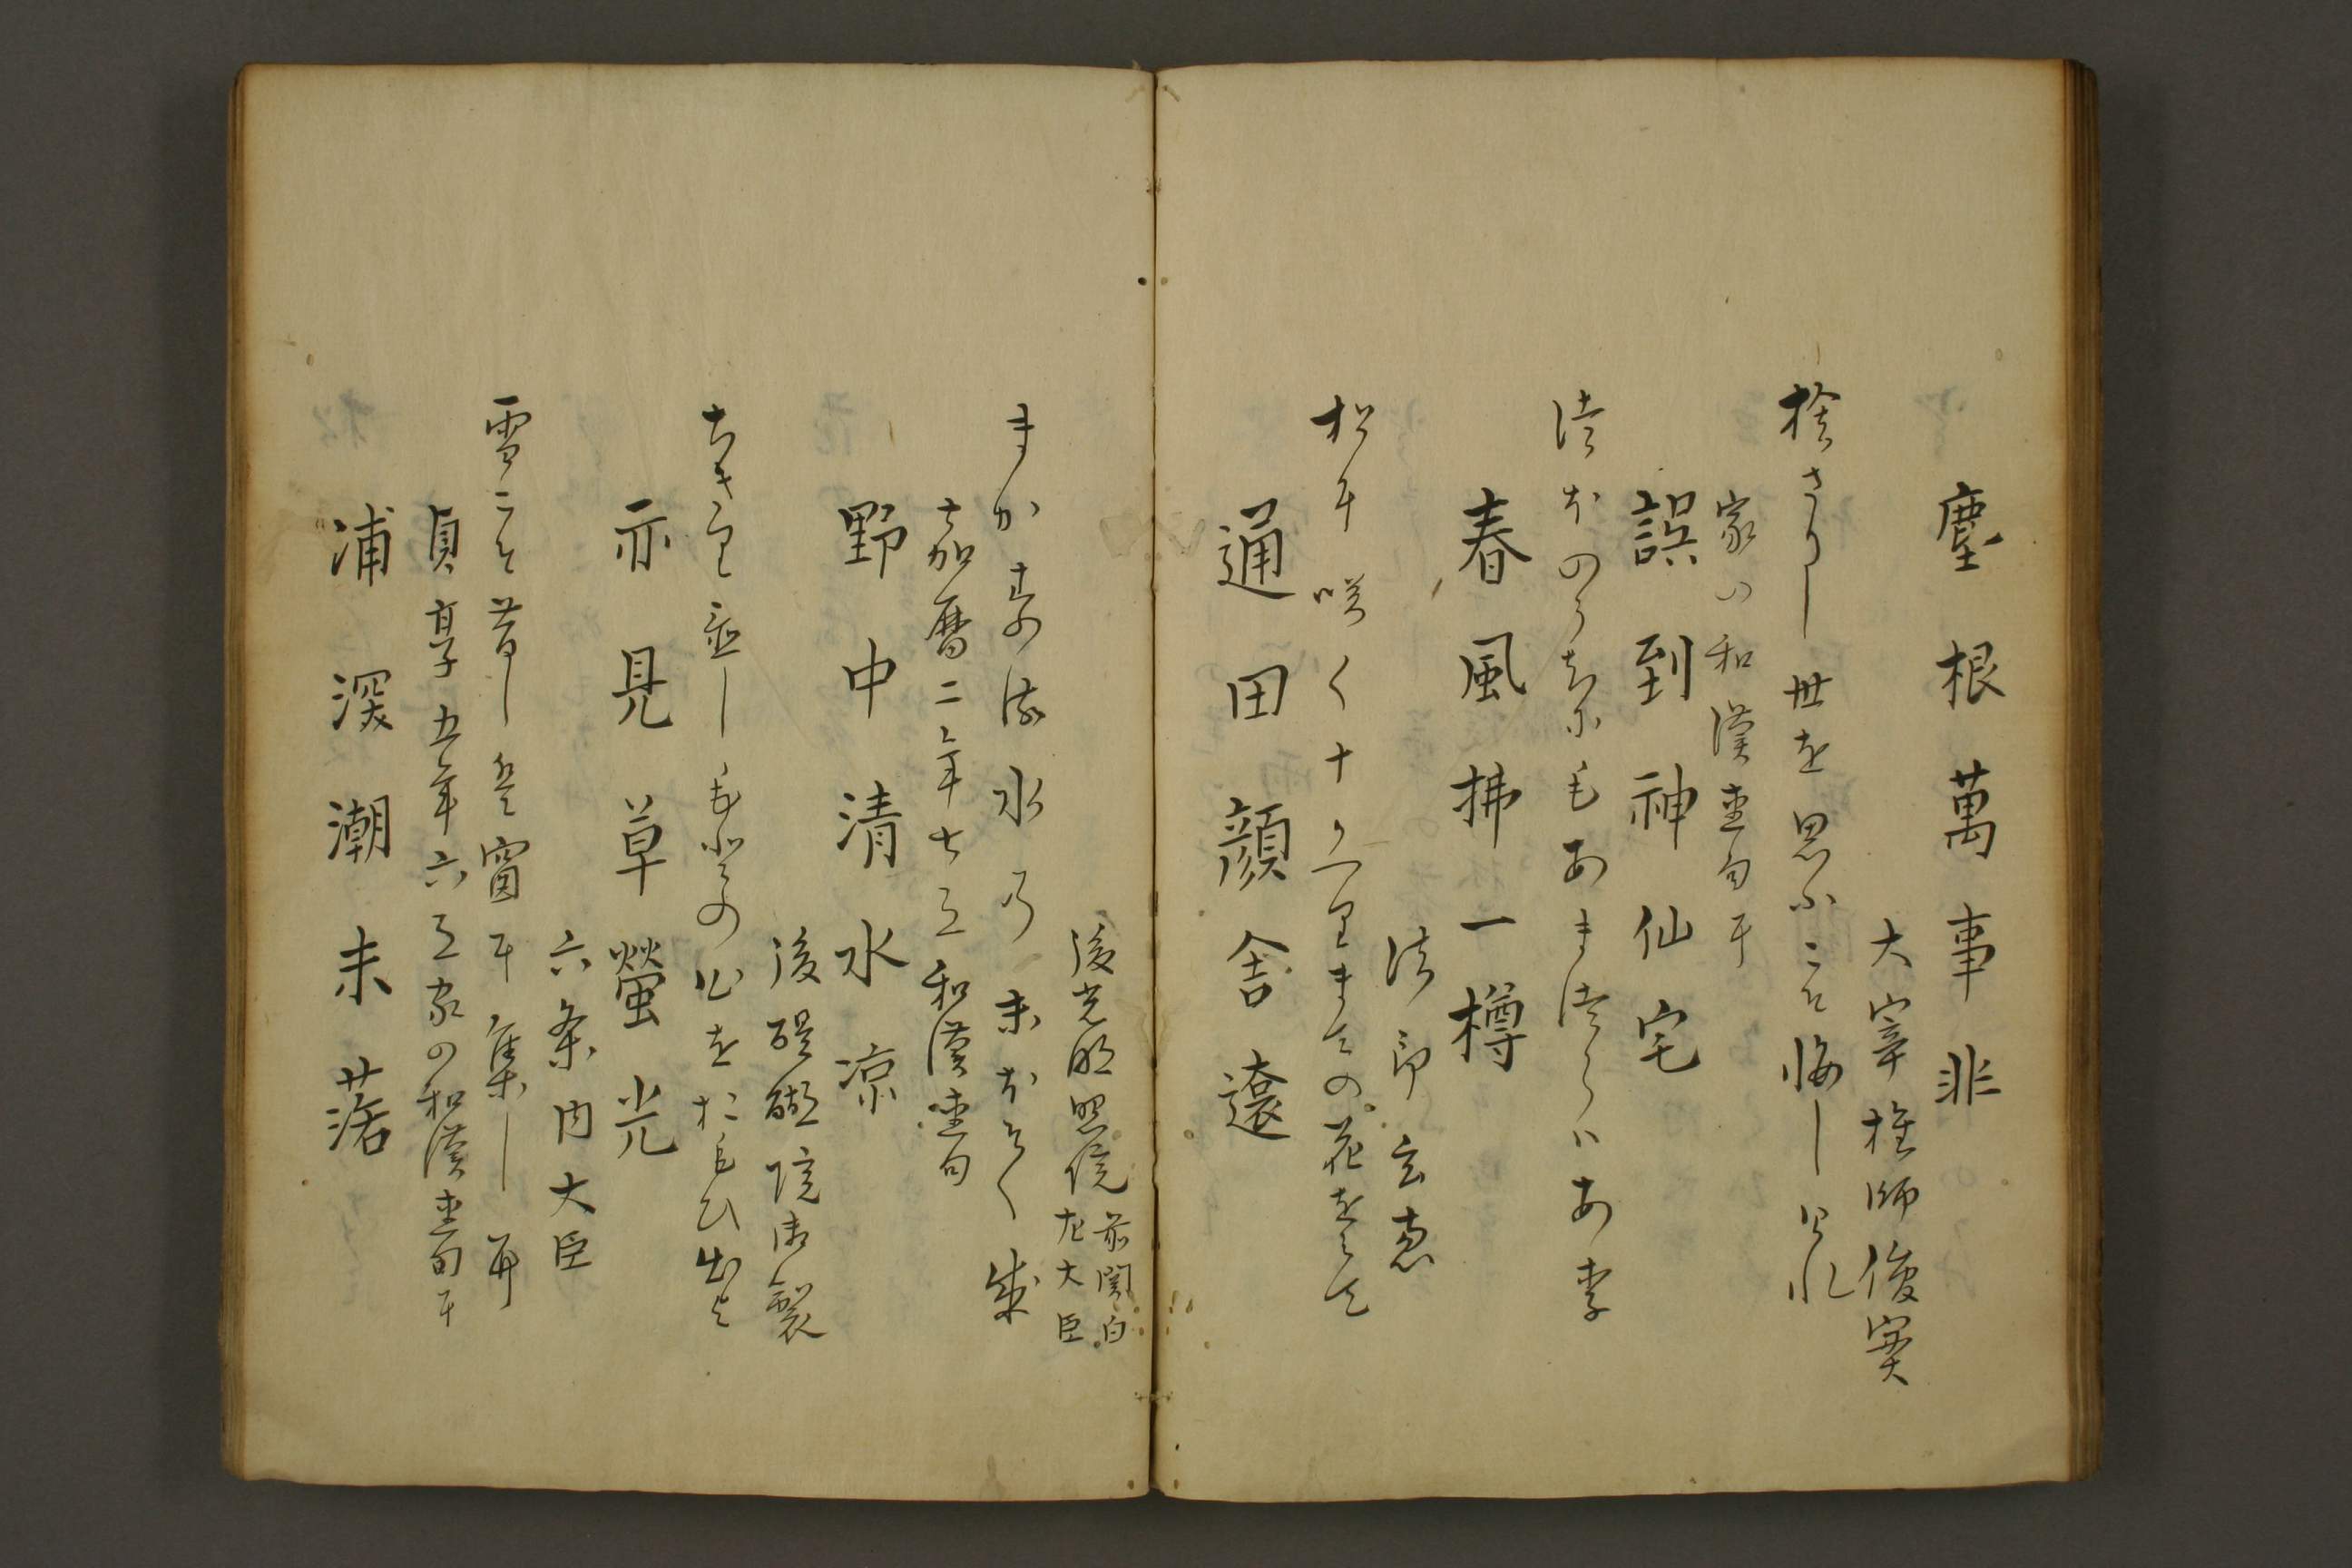 塵根萬事非
大宰権師俊実
捨さりし世を思ふこそ悔しけれ
家の和漢連句に
誤到神仙宅
つほのうちにもあまつそらはあり
春風拂一樽
法印玄恵
松に咲く十かへりまての花をみて
通田顔舎遠
後光明照院前関白左大臣
まかする水の末ほそく成
嘉暦二年七月和漢連句
野中清水涼
後醍醐院御製
ちきり置しもとの心をおもひ出よ
亦見草螢光
六条内大臣
雪こそ昔し窓に集し
貞享五年六月家の和漢連句に
浦深潮未落